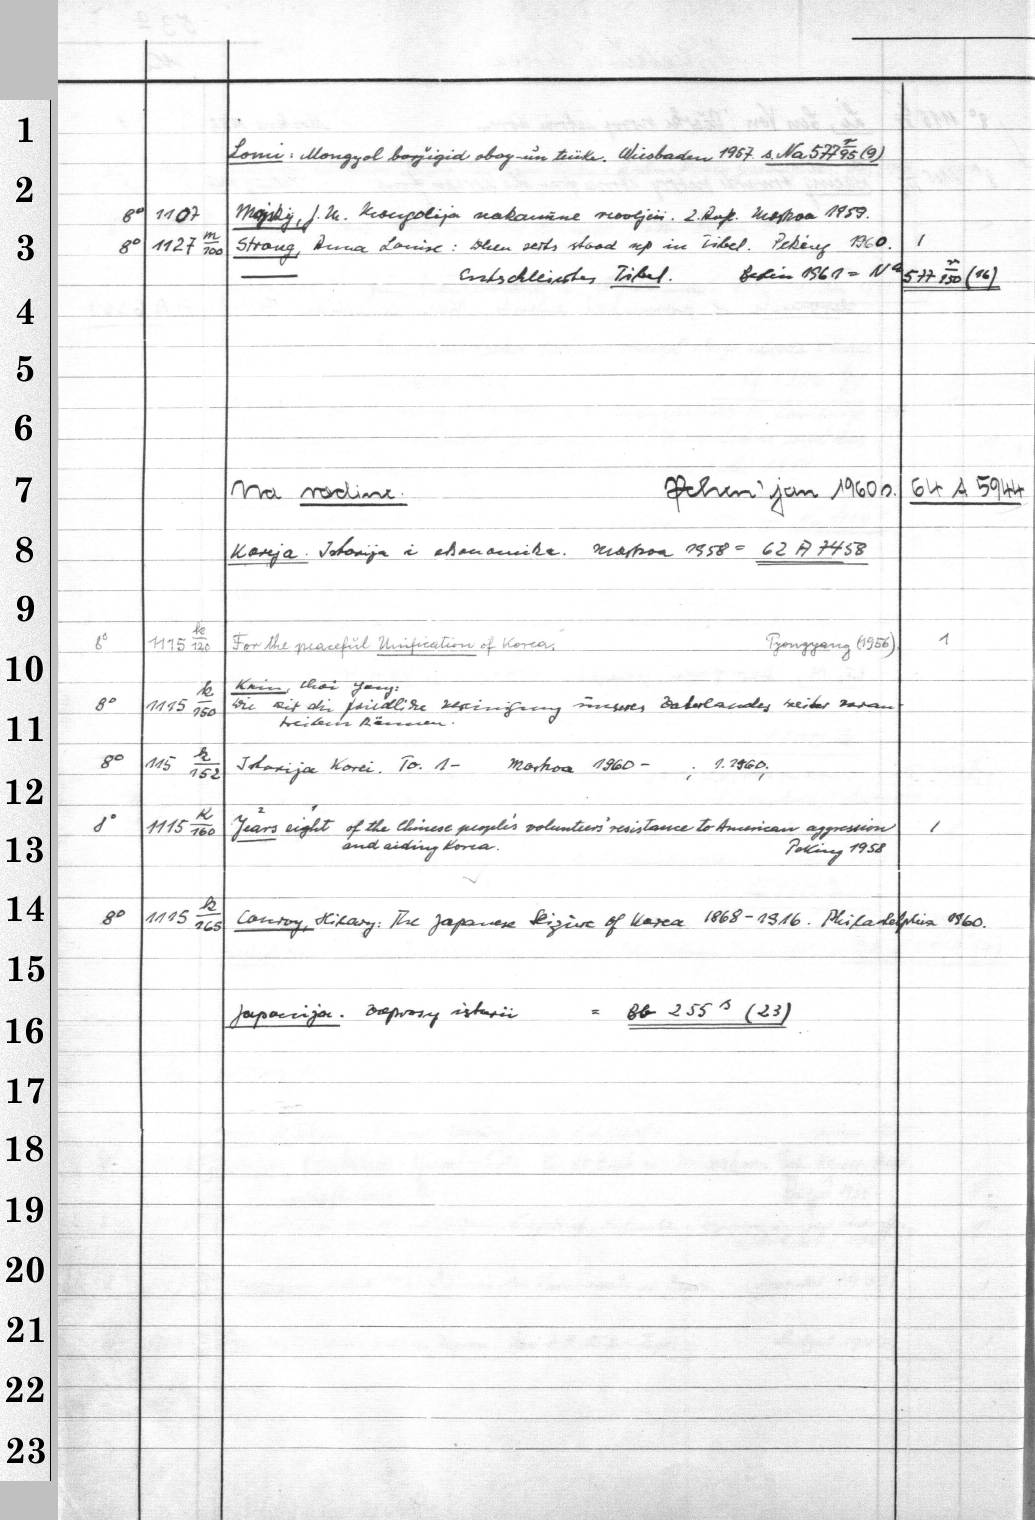 1
Lomi: Mongγol borǰigid oboγ-un teüke. Wiesbaden 1957 s. Na 577 n/95 (9)
2
8° 1107 Majskij, J. M. Mongolija nakanune revoljucii. 2. Aufl. Moskva 1959.
3
8° 1127 m/100 Strong, Anna Louise: When serfs stood up in Tibet. Peking 1960. 1
Entschleiertes Tibet. Berlin 1961 = Na 577 n/150 (16)
4
5
6
7
Na rodine. Pchen'jan 1960 s. 64 A 5944
8
Koreja. Istorija i ekonomika. Moskva 1958 = 62 A 7458
9
8° 1115 k/120 For the peaceful Unification of Korea. Pyongyang (1956). 1
10
Kim, Choi Yong:
8° 1115 k/150 Wie wir die friedliche Vereinigung unseres Vaterlandes weiter voran-
11
treiben können.
8° 115 k/152 Istorija Korei. To. 1- Moskva 1960- ; 1.1960;
12
8° 1115 K/160 Years eight of the Chinese people's volunteers' resistance to American aggression 1
13
and aiding Korea. Peking 1958
14
8° 1115 k/165 Conroy, Hilary: The Japanese Seizure of Korea 1868-1916. Philadelphia 1960.
15
16
Japonija. Voprosy istorii = Bb 255 s (23)
17
18
19
20
21
22
23